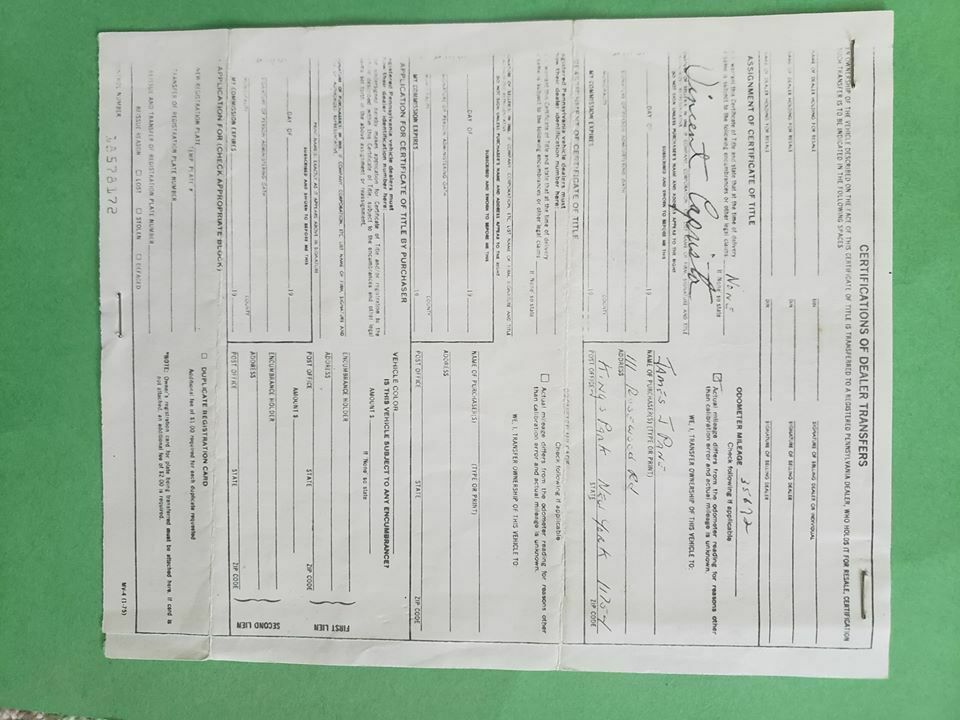 CERTIFICATIONS OF DEALER TRANSFERS
OWNERSHIP OF THE VEHICLE DESCRIBED ON THE FACE OF THIS CERTIFICATE OF TITLE IS TRANSFERRED TO A REGISTERED PENNSYLVANIA DEALER, WHO HOLDS IT FOR RESALE, CERTIFICATION
SUCH TRANSFER IS TO BE INDICATED IN THE FOLLOWING SPACES
NAME OF DEALER HOLDING FOR RESALE DIN SIGNATURE OF SELLING DEALER OR INDIVIDUAL
NAME OF DEALER HOLDING FOR RESALE DIN SIGNATURE OF SELLING DEALER
NAME OF DEALER HOLDING FOR RESALE DIN SIGNATURE OF SELLING DEALER
ASSIGNMENT OF CERTIFICATE OF TITLE
warrant this Certificate of Title and state that at the time of delivery
same is subject to the following encumbrances or other legal claims
None
If 'None' so state
Vincent
DO NOT SIGN UNLESS PURCHASER'S NAME AND ADDRESS APPEAR TO THE RIGHT
SUBSCRIBED AND SWORN TO BEFORE ME THIS
DAY OF 19
SIGNATURE OF PERSON ADMINISTERING OATH
COUNTY
MY COMMISSION EXPIRES 19
ODOMETER MILEAGE 35672
Check following if applicable
Actual mileage differs from the odometer reading for reasons other
than calibration error and actual mileage is unknown.
WE, I, TRANSFER OWNERSHIP OF THIS VEHICLE TO:
JAMES J PANE
NAME OF PURCHASER(S) (TYPE OR PRINT)
111 Rosewood Rd
ADDRESS
Kings Park New York 11754
POST OFFICE STATE ZIP CODE
RE-ASSIGNMENT OF CERTIFICATE OF TITLE
registered Pennsylvania vehicle dealers must
show their dealer identification number here:
warrant this Certificate of Title and state that at the time of delivery
same is subject to the following encumbrances or other legal claims
If 'None' so state
DO NOT SIGN UNLESS PURCHASER'S NAME AND ADDRESS APPEAR TO THE RIGHT
SUBSCRIBED AND SWORN TO BEFORE ME THIS
DAY OF 19
SIGNATURE OF PERSON ADMINISTERING OATH
COUNTY
MY COMMISSION EXPIRES 19
ODOMETER MILEAGE
Check following if applicable
Actual mileage differs from the odometer reading for reasons other
than calibration error and actual mileage is unknown.
WE, I, TRANSFER OWNERSHIP OF THIS VEHICLE TO:
NAME OF PURCHASER(S) (TYPE OR PRINT)
ADDRESS
POST OFFICE STATE ZIP CODE
APPLICATION FOR CERTIFICATE OF TITLE BY PURCHASER
registered Pennsylvania vehicle dealers must
show their dealer identification number here:
SUBSCRIBED AND SWORN TO BEFORE ME THIS
DAY OF 19
SIGNATURE OF PERSON ADMINISTERING OATH
COUNTY
MY COMMISSION EXPIRES 19
VEHICLE COLOR
IS THIS VEHICLE SUBJECT TO ANY ENCUMBRANCE?
AMOUNT $ If 'None' so state
ENCUMBRANCE HOLDER
ADDRESS
POST OFFICE STATE ZIP CODE
FIRST LIEN
AMOUNT $
ENCUMBRANCE HOLDER
ADDRESS
POST OFFICE STATE ZIP CODE
SECOND LIEN
APPLICATION FOR (CHECK APPROPRIATE BLOCK)
NEW REGISTRATION PLATE
TEMP PLATE #
TRANSFER OF REGISTRATION PLATE NUMBER
REISSUE AND TRANSFER OF REGISTRATION PLATE NUMBER
REISSUE REASON LOST STOLEN DEFACED
CONTROL NUMBER
DUPLICATE REGISTRATION CARD
Additional fee of $1.00 required for each duplicate requested
*NOTE: Owner's registration card for plate being transferred must be attached here. If card is
not attached, an additional fee of $2.00 is required.
MV-4 (1-75)